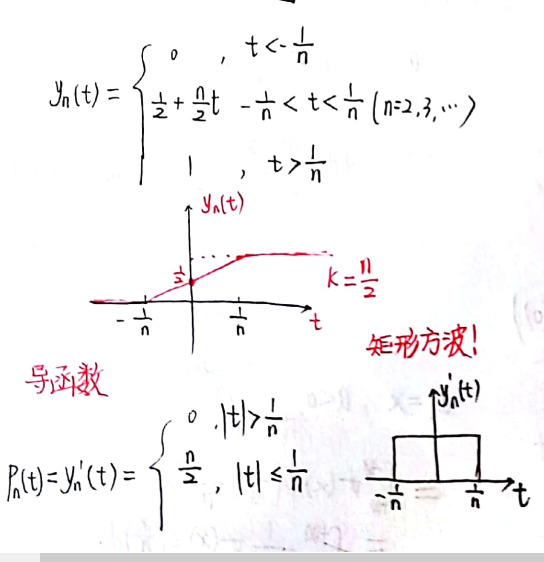 0 , t<-1/n
yₙ(t) = { 1/2 + n/2 t -1/n < t < 1/n (n=2,3,⋯)
1 , t>1/n
yₙ(t)
1/2
K = n/2
-1/n 1/n t
矩形方波!
导函数
yₙ'(t)
0 , |t|>1/n
Pₙ(t)=yₙ'(t)= { n/2 , |t|≤1/n
-1/n 1/n t